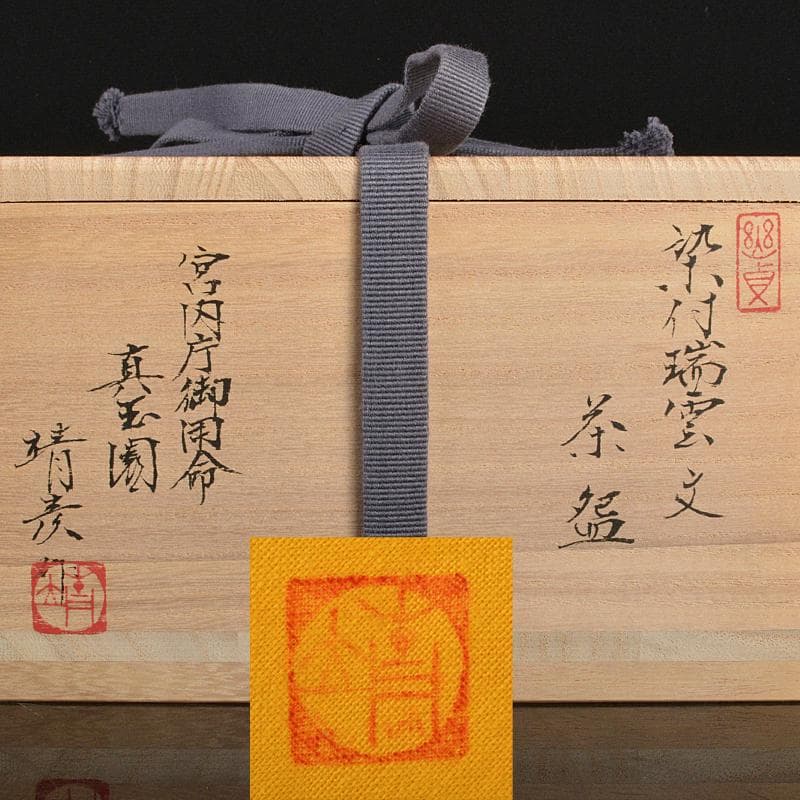 染付瑞雲文
茶盌
宮内庁御用命
真玉園
靖彦作